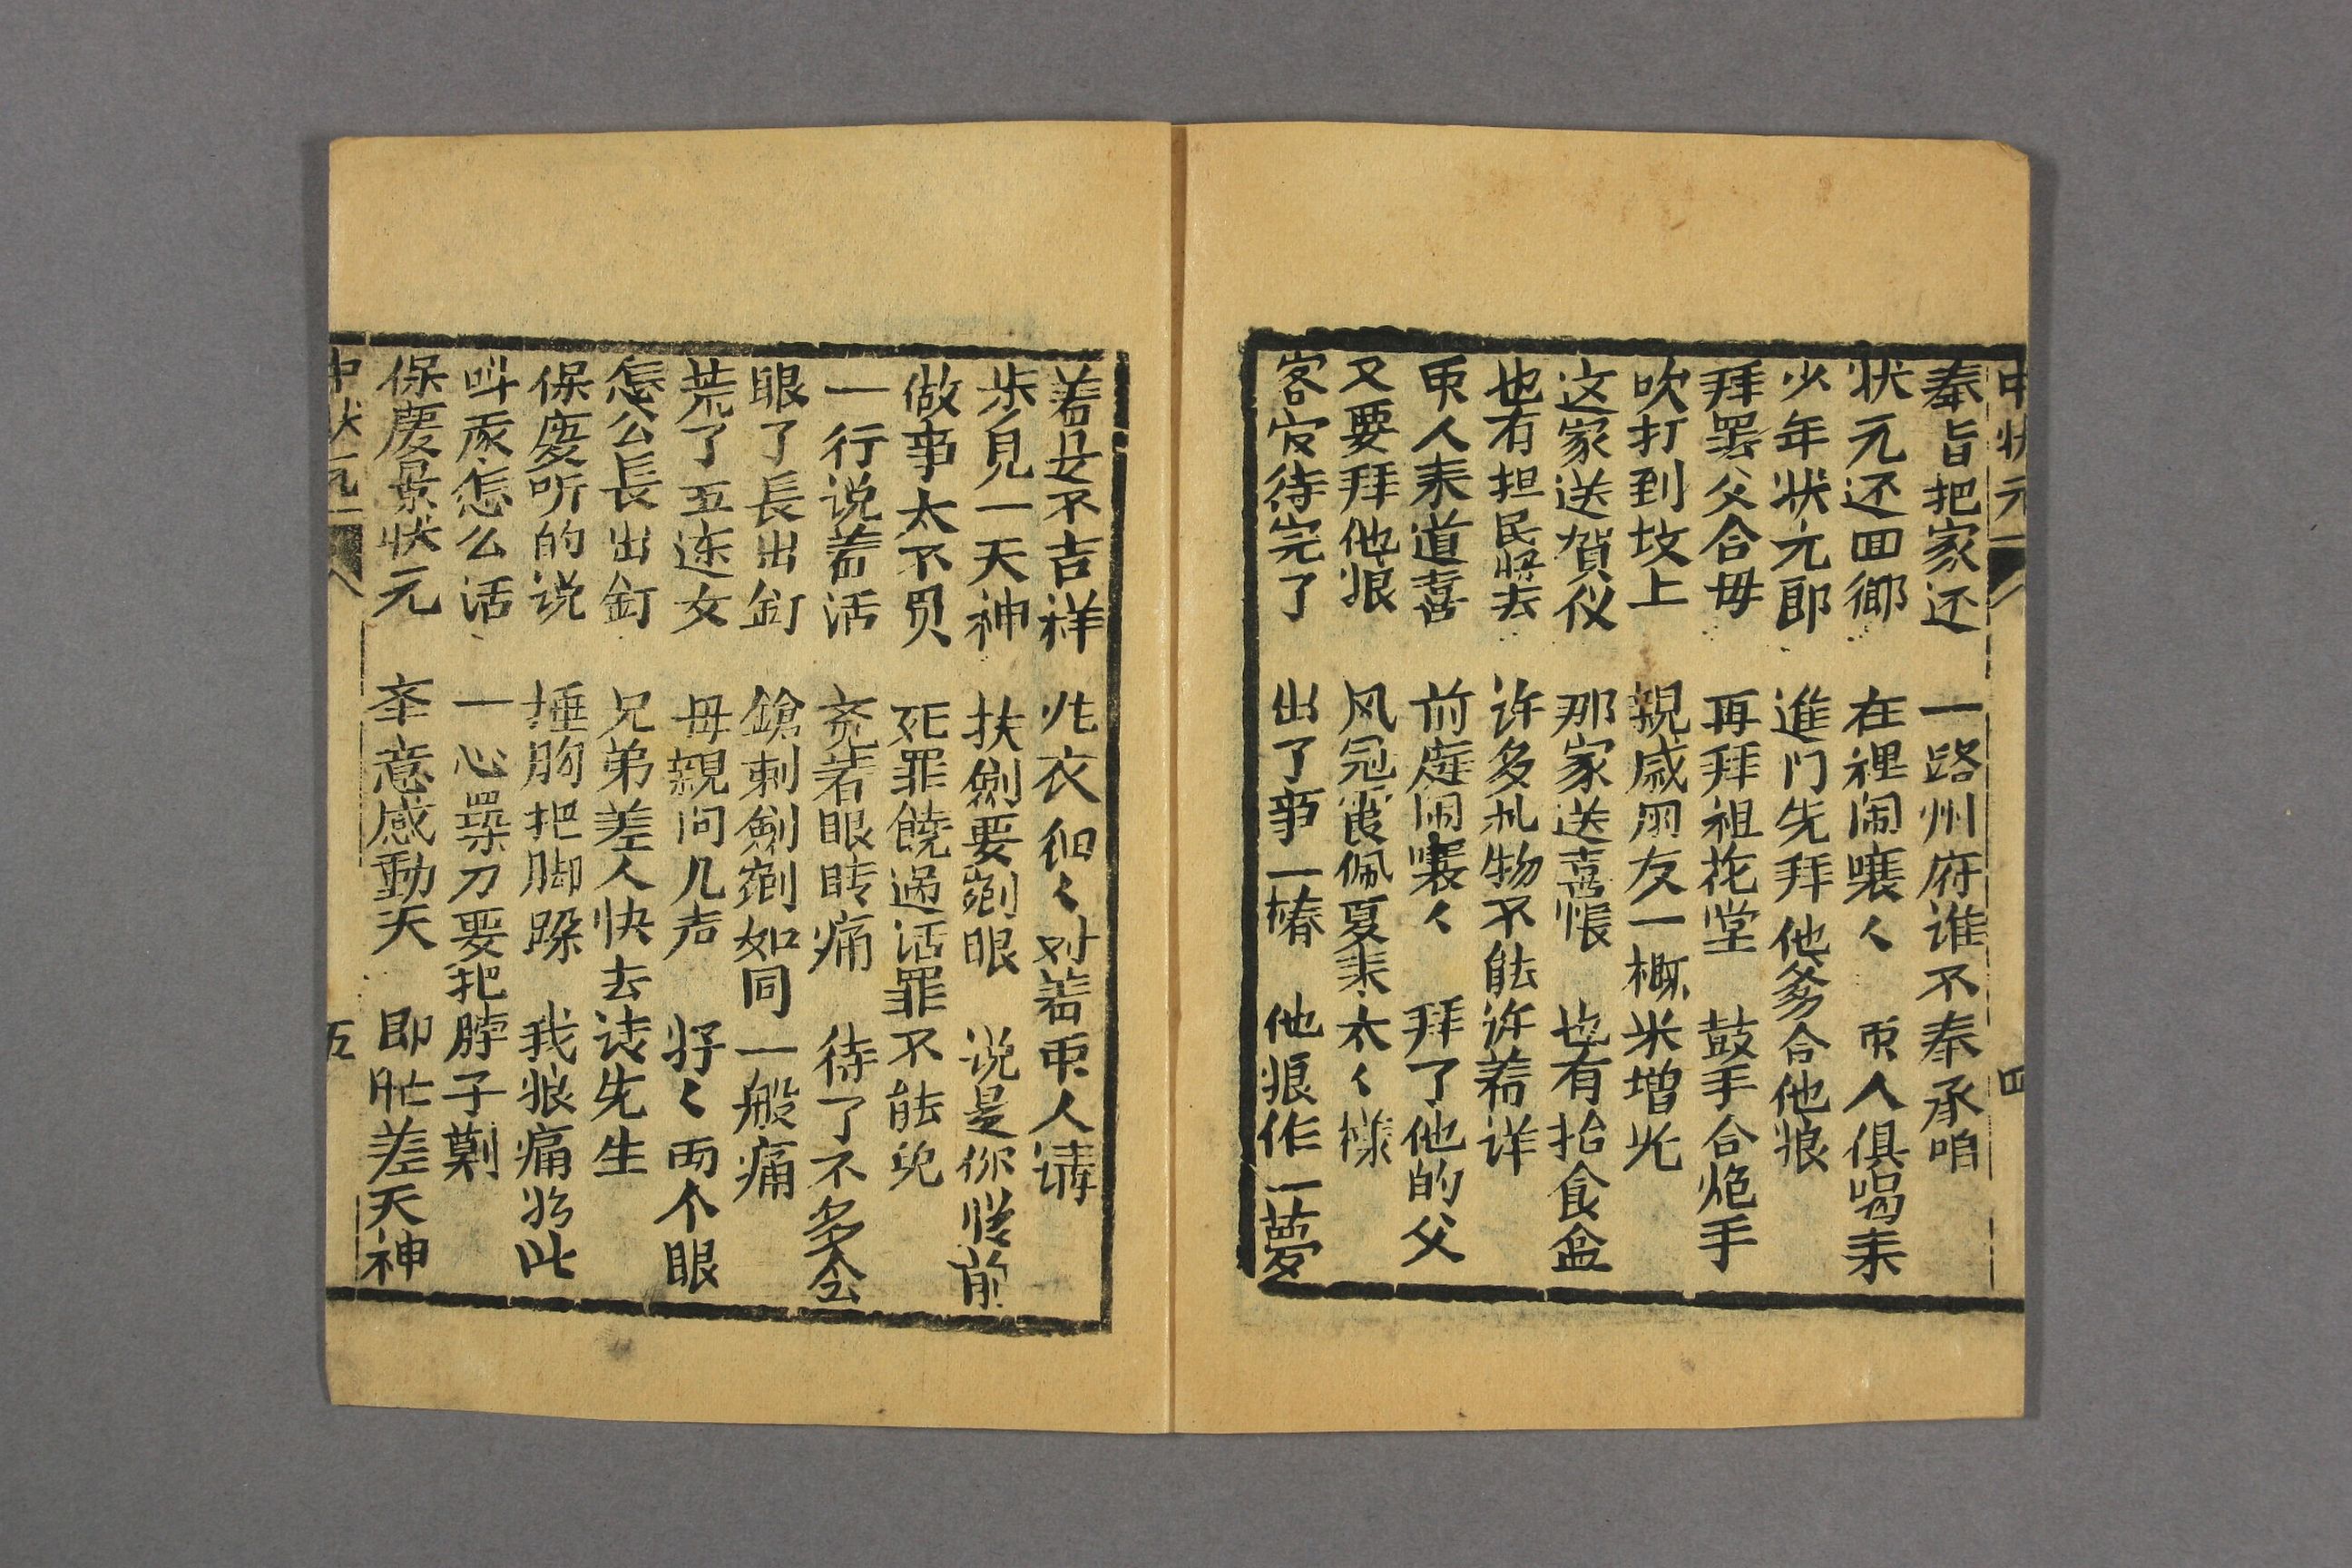 中状元 四
奉旨把家还 一路州府谁不奉承咱
状元还回鄉 在裡闹嚷〻 币人俱喝耒
少年状元郎 進门先拜他爹合他娘
拜罢父合母 再拜祖花堂 鼓手合炮手
吹打到坟上 親戚朋友一概米增光
这家送贺仪 那家送喜帐 也有抬食盒
也有担民将去 许多礼物不能许着详
币人耒道喜 前庭闹嚷〻 拜了他的父
又要拜他娘 风冠霞佩夏耒太〻樣
客官待完了 出了事一椿 他娘作一夢
着母不吉祥 兆衣细〻对着币人讲
步見一天神 扶劍要剜眼 说是你從前
做事太不贤 死罪饒過活罪不能免
一行说着活 竞着眼睛痛 待了不多会
眼了長出釘 鎗刺劍剜如同一般痛
荒了五连女 母親问几声 好〻両个眼
怎么長出釘 兄弟差人快去请先生
保庆听的说 捶胸把脚跺 我娘痛如此
叫我怎么活 一心拿刀要把脖子割
保慶是状元 孝意感動天 即忙差天神
中状元 五